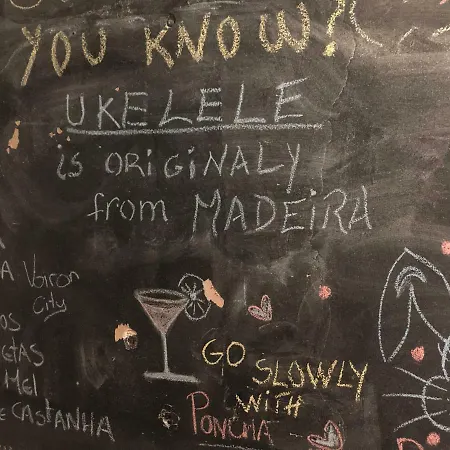 YOU KNOW?
UKELELE
is ORiGiNALY
from MADEiRA
A Voiron
City
OS
GETAS
Mel
e CASTANHA
GO SLOWLY
WITH
PONCHA